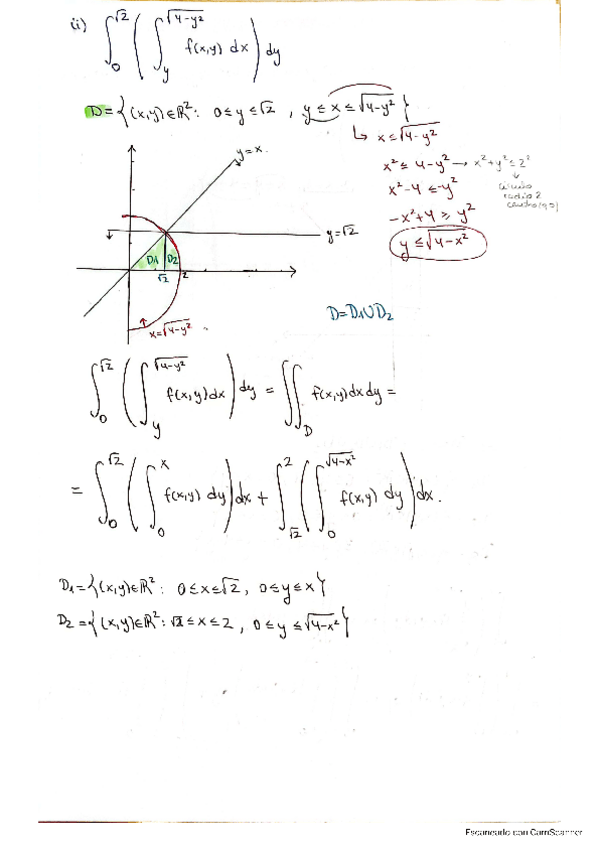 ii) ∫₀^√2 ( ∫_y^√(4-y²) f(x,y) dx ) dy
D = { (x,y)∈ℝ²: 0≤y≤√2 , y≤x≤√(4-y²) }
↳ x≤√(4-y²)
x² ≤ 4-y² → x²+y² ≤ 2²
x²-4 ≤ -y²
círculo
radio 2
centro (0,0)
-x²+4 ≥ y²
y ≤ √(4-x²)
y=x.
y=√2
D1 D2
√2 2
x=√(4-y²)
D=D1∪D2
∫₀^√2 ( ∫_y^√(4-y²) f(x,y) dx ) dy = ∬_D f(x,y) dx dy =
= ∫₀^√2 ( ∫₀^x f(x,y) dy ) dx + ∫_√2^2 ( ∫₀^√(4-x²) f(x,y) dy ) dx.
D1 = { (x,y)∈ℝ²: 0≤x≤√2, 0≤y≤x }
D2 = { (x,y)∈ℝ²: √2≤x≤2, 0≤y≤√(4-x²) }
Escaneado con CamScanner